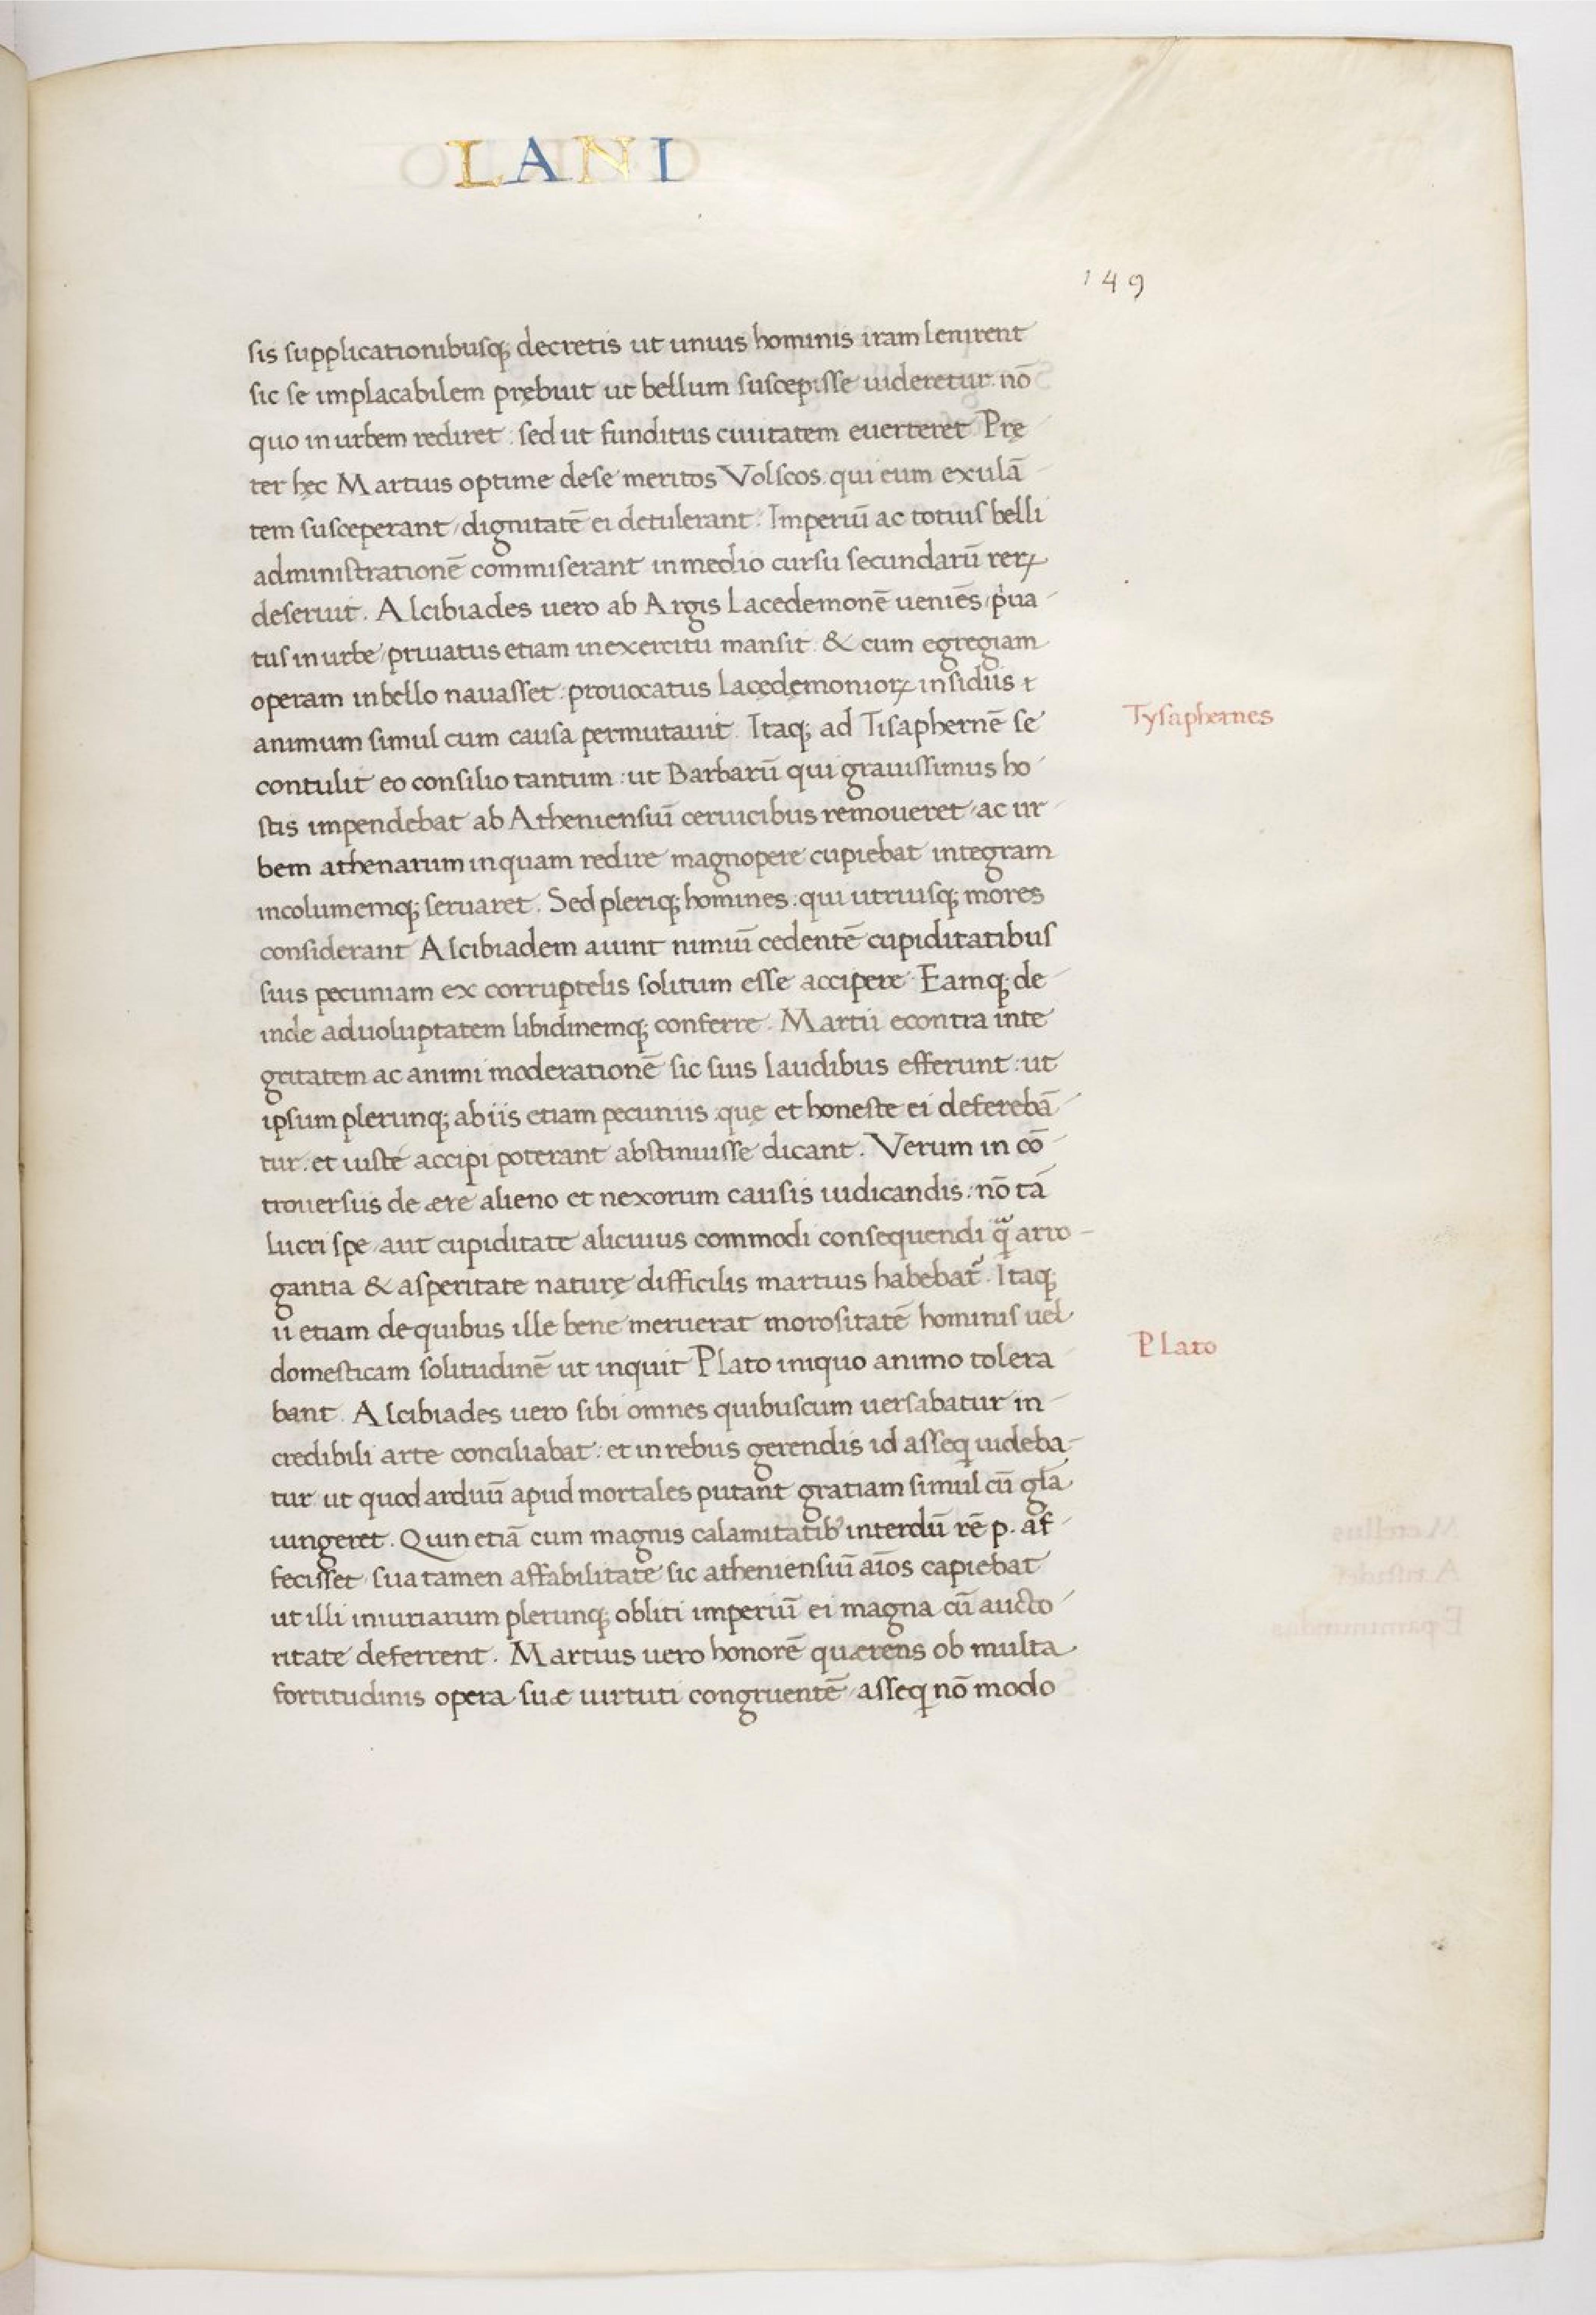 LANI
149
sis supplicationibusq; decretis ut unius hominis iram lenirent
sic se implacabilem prębuit ut bellum suscepisse uideretur: nō
quo in urbem rediret: sed ut funditus ciuitatem euerteret Prę
ter hęc Martius optime de se meritos Volscos: qui eum exulā
tem susceperant, dignitatē ei detulerant: Imperiū ac totius belli
administrationē commiserant in medio cursu secundarū rerꝝ
deseruit. Alcibiades uero ab Argis Lacedemonē ueniēs, pͥua
tus in urbe, priuatus etiam in exercitu mansit: & cum egregiam
operam in bello nauasset: prouocatus Lacędęmoniorꝝ insidiis
animum simul cum causa permutauit. Itaq; ad Tisaphernē se
contulit eo consilio tantum: ut Barbarū qui grauissimus ho
stis impendebat ab Atheniensiū ceruicibus remoueret, ac ur
bem athenarum in quam redire magnopere cupiebat integram
incolumemq; seruaret. Sed pleriq; homines: qui utriusq; mores
considerant Alcibiadem aiunt nimiū cedentē cupiditatibus
suis pecuniam ex corruptelis solitum esse accipere. Eamq; de
inde ad uoluptatem libidinemq; conferre. Martii econtra inte
gritatem ac animi moderationē sic suis laudibus efferunt: ut
ipsum plerunq; ab iis etiam pecuniis: quę et honeste ei deferebā
tur: et iuste accipi poterant abstinuisse dicant. Verum in cō
trouersiis de ære alieno et nexorum causis iudicandis: nō tā
lucri spe, aut cupiditate alicuius commodi consequendi q̃ arro-
gantia & asperitate naturę difficilis martius habebat᷑. Itaq;
ii etiam de quibus ille bene meruerat morositatē hominis uel
domesticam solitudinē ut inquit Plato iniquo animo tolera
bant. Alcibiades uero sibi omnes quibuscum uersabatur in-
credibili arte conciliabat: et in rebus gerendis id asseq uideba-
tur: ut quod arduū apud mortales putant gratiam simul cū glā
iungeret. Quin etiā cum magnis calamitatib᾽ interdū rē p. af
fecisset, sua tamen affabilitate sic atheniensiū aīos capiebat
ut illi iniuriarum plerunq; obliti imperiū ei magna cū aucto
ritate deferrent. Martius uero honorē quærens ob multa
fortitudinis opera, suæ uirtuti congruentē, asseq nō modo
Tysaphernes
Plato